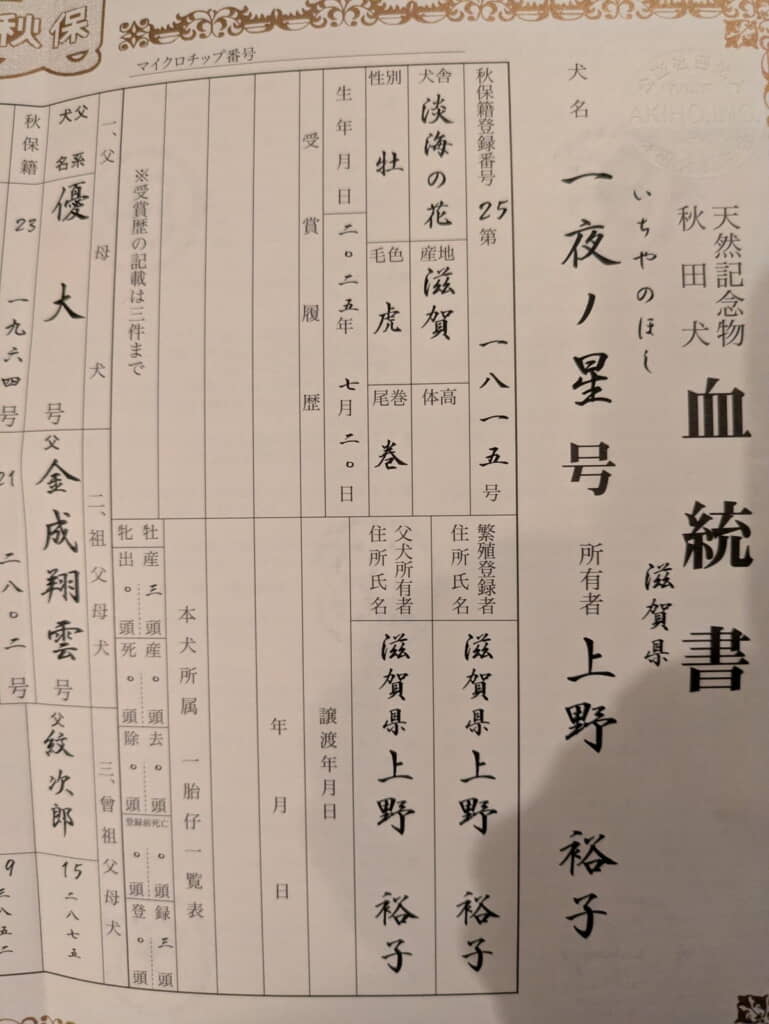 秋保
AKIHO.INC.
天然記念物
秋田犬
血統書
犬名
いちやのほし
一夜ノ星号
所有者
滋賀県
上野 裕子
秋保籍登録番号
25第
一八一一五号
犬舎
淡海の花
産地
滋賀
体高
性別
牡
毛色
虎
尾巻
巻
生年月日
二〇二五年
七月二〇日
受賞履歴
※受賞歴の記載は三件まで
マイクロチップ番号
繁殖登録者
住所氏名
滋賀県上野 裕子
父犬所有者
住所氏名
滋賀県上野 裕子
譲渡年月日
年月日
本犬所属 一胎仔一覧表
牡 産三頭 産〇頭 去〇頭 〇頭 録三頭
牝 出〇頭 死〇頭 除〇頭 登録前死亡 〇頭 登〇頭
一、父母犬
二、祖父母犬
三、曾祖父母犬
父系
犬名
優大号
父
金成翔雲号
父
紋次郎
15
二八七五
秋保籍
23
一九六四号
21
二八〇二号
9
三八五二